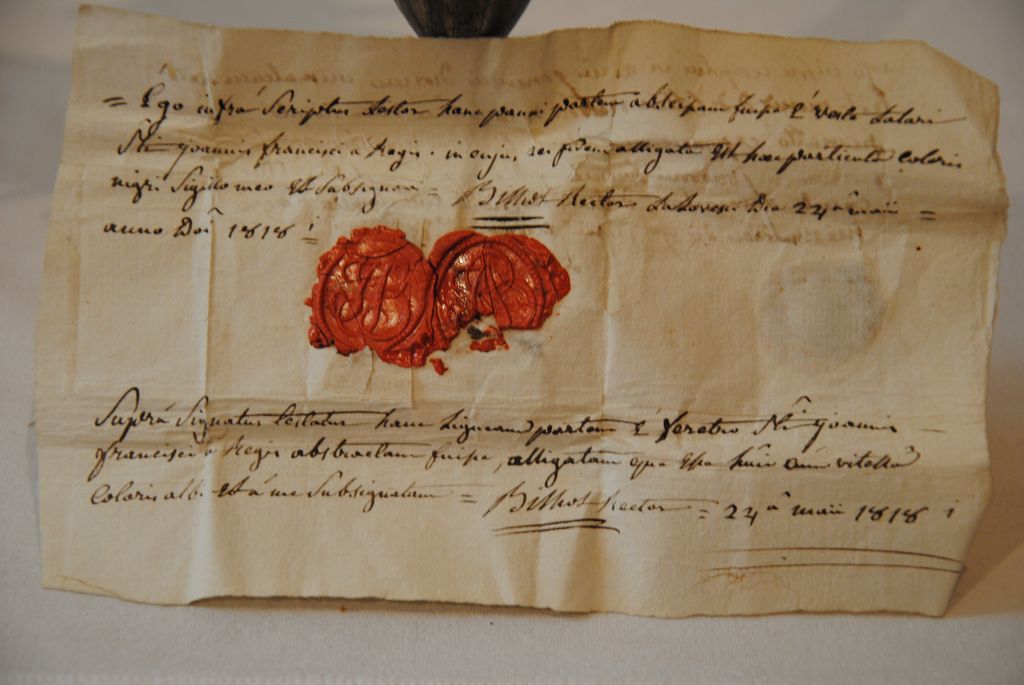 = Ego infrá Scriptus testor hanc panni partem abscissam fuisse é veste talari
Sti Joannis francisci á Regis. in cujus rei fidem alligata est hæc particula coloris
nigri Sigillo meo et Subsignavi = Rector Lalovesci Die 24â maii =
anno Doî 1818 =
Suprá Signatus testatur hanc ligneam partem é feretro Sti Joannis
francisci á Regis abstractam fuisse, alligatam que esse huic cum vittâ
coloris albi et á me Subsignatam = Rector = 24â maii 1818